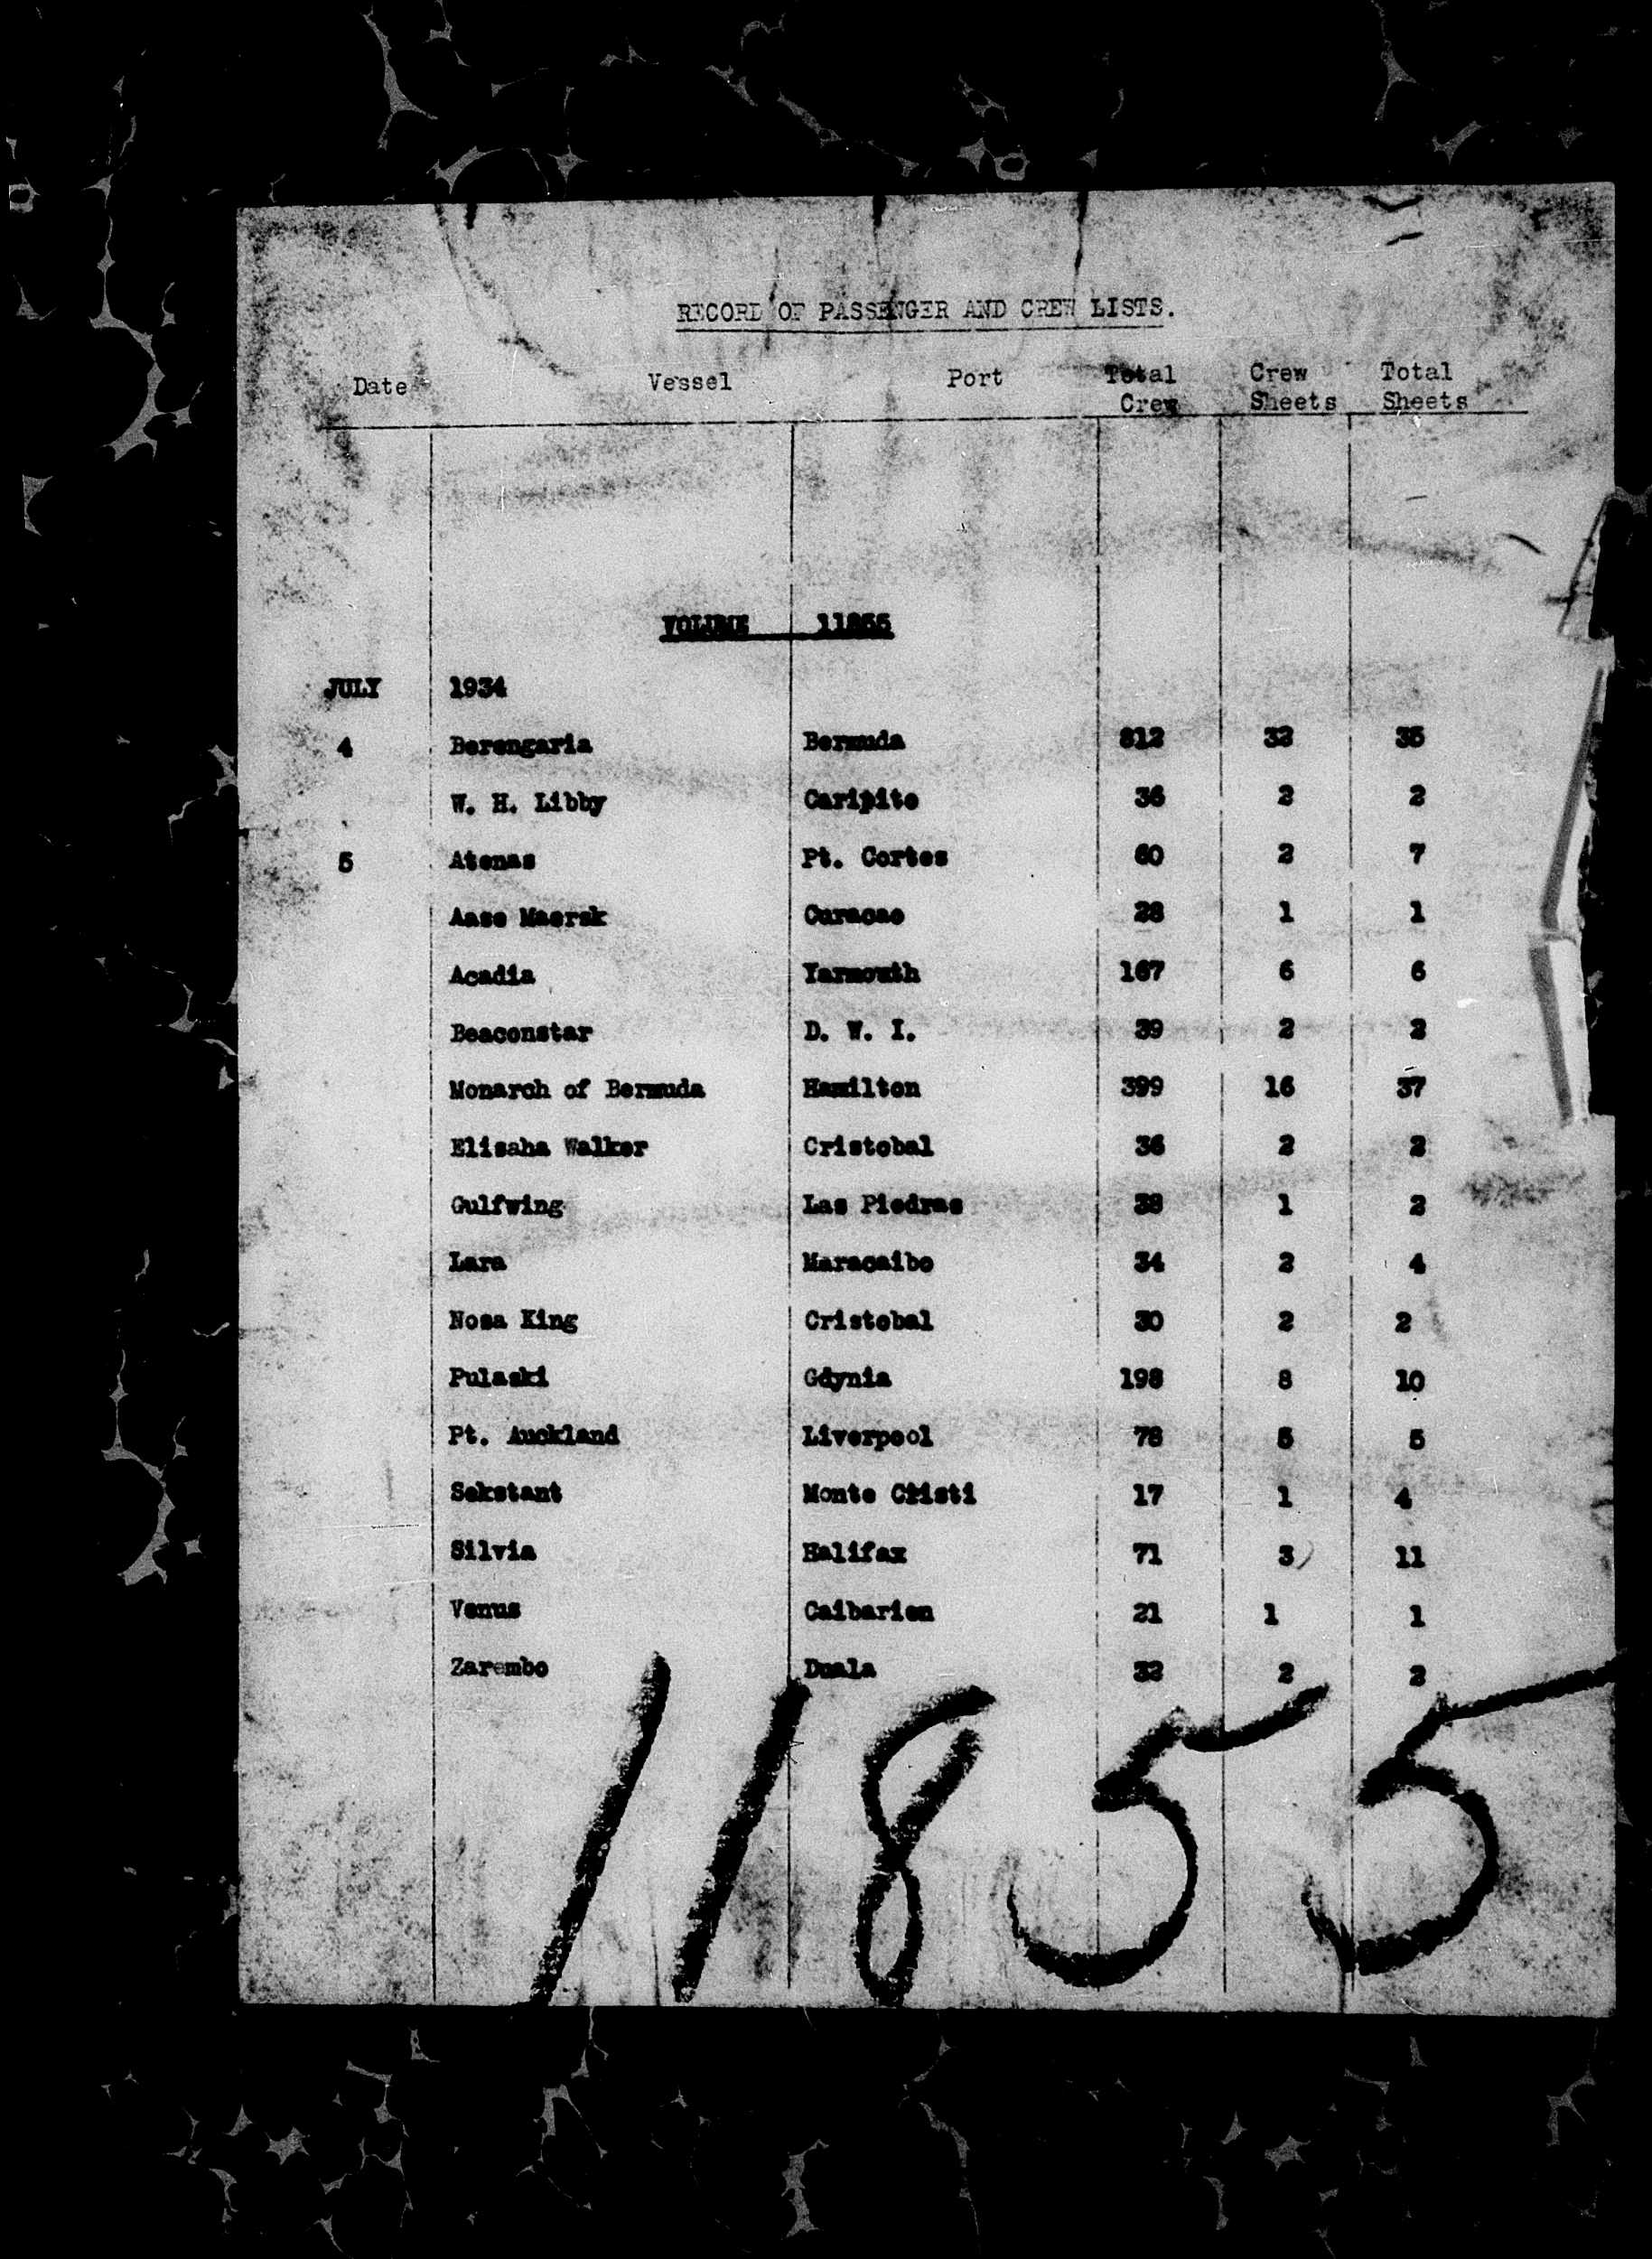 RECORD OF PASSENGER AND CREW LISTS.
Date Vessel Port Total Crew Crew Sheets Total Sheets
VOLUME 11855
JULY 1934
4 Berengaria Bermuda 812 32 35
W. H. Libby Caripito 36 2 2
5 Atenas Pt. Cortes 60 2 7
Aase Maersk Curacao 28 1 1
Acadia Yarmouth 167 6 6
Beaconstar D. W. I. 39 2 2
Monarch of Bermuda Hamilton 399 16 37
Elisaha Walker Cristobal 36 2 2
Gulfwing Las Piedras 38 1 2
Lara Maracaibo 34 2 4
Nosa King Cristobal 30 2 2
Pulaski Gdynia 198 8 10
Pt. Auckland Liverpool 78 5 5
Sekstant Monte Cristi 17 1 4
Silvia Halifax 71 3 11
Venus Caibarien 21 1 1
Zarembo Duala 32 2 2
11855